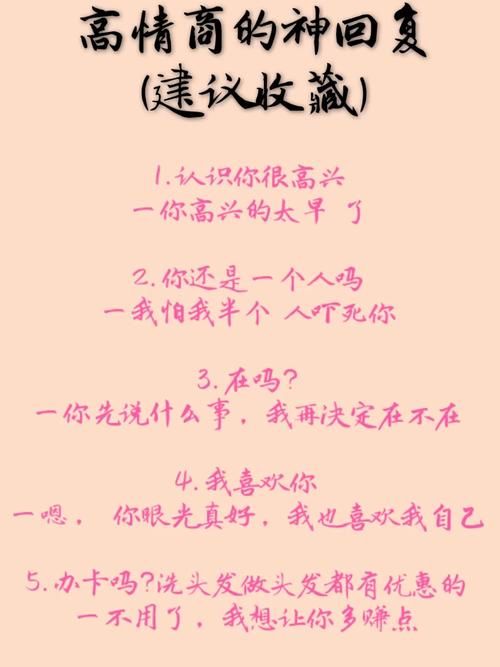 高情商的神回复
(建议收藏)
1.认识你很高兴
一你高兴的太早 了
2.你还是一个人吗
一我怕我半个 人吓死你
3.在吗?
一你先说什么事，我再决定在不在
4.我喜欢你
一嗯， 你眼光真好，我也喜欢我自己
5.办卡吗?洗头发做头发都有优惠的
一不用了，我想让你多赚点